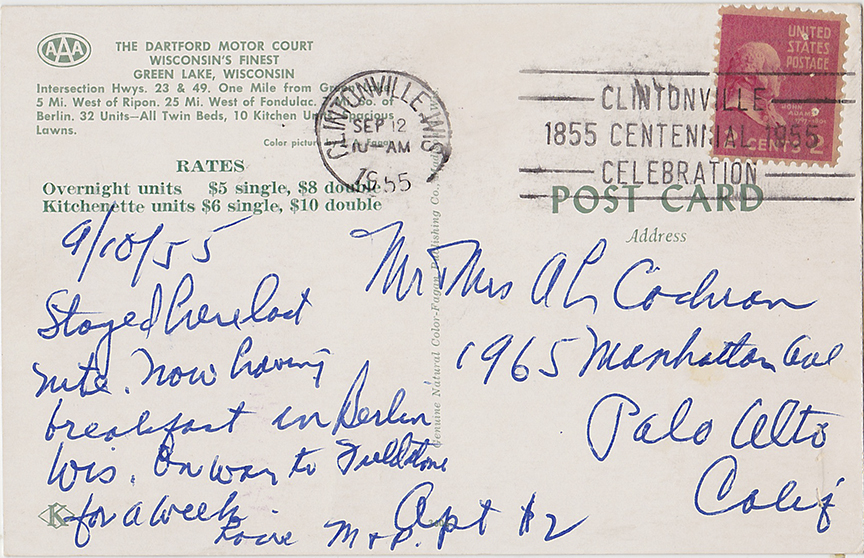 AAA
THE DARTFORD MOTOR COURT
WISCONSIN'S FINEST
GREEN LAKE, WISCONSIN
Intersection Hwys. 23 & 49. One Mile from Green
5 Mi. West of Ripon. 25 Mi. West of Fondulac. of
Berlin. 32 Units—All Twin Beds, 10 Kitchen
Lawns.
Color
RATES
Overnight units $5 single, $8 double
Kitchenette units $6 single, $10 double
9/10/55
Stayed here last
nite. Now having
breakfast in Berlin
Wis. On way to Fieldstone
for a week.
Love M & P.
K
Genuine Natural Color-Fagan Publishing Co.
CLINTONVILLE, WIS
SEP 12
AM
1955
CLINTONVILLE
1855 CENTENNIAL 1955
CELEBRATION
UNITED
STATES
POSTAGE
JOHN
ADAMS
CENTS 2
POST CARD
Address
Mr & Mrs A L Cochran
1965 Manhattan Ave
Palo Alto
Calif
Apt #2